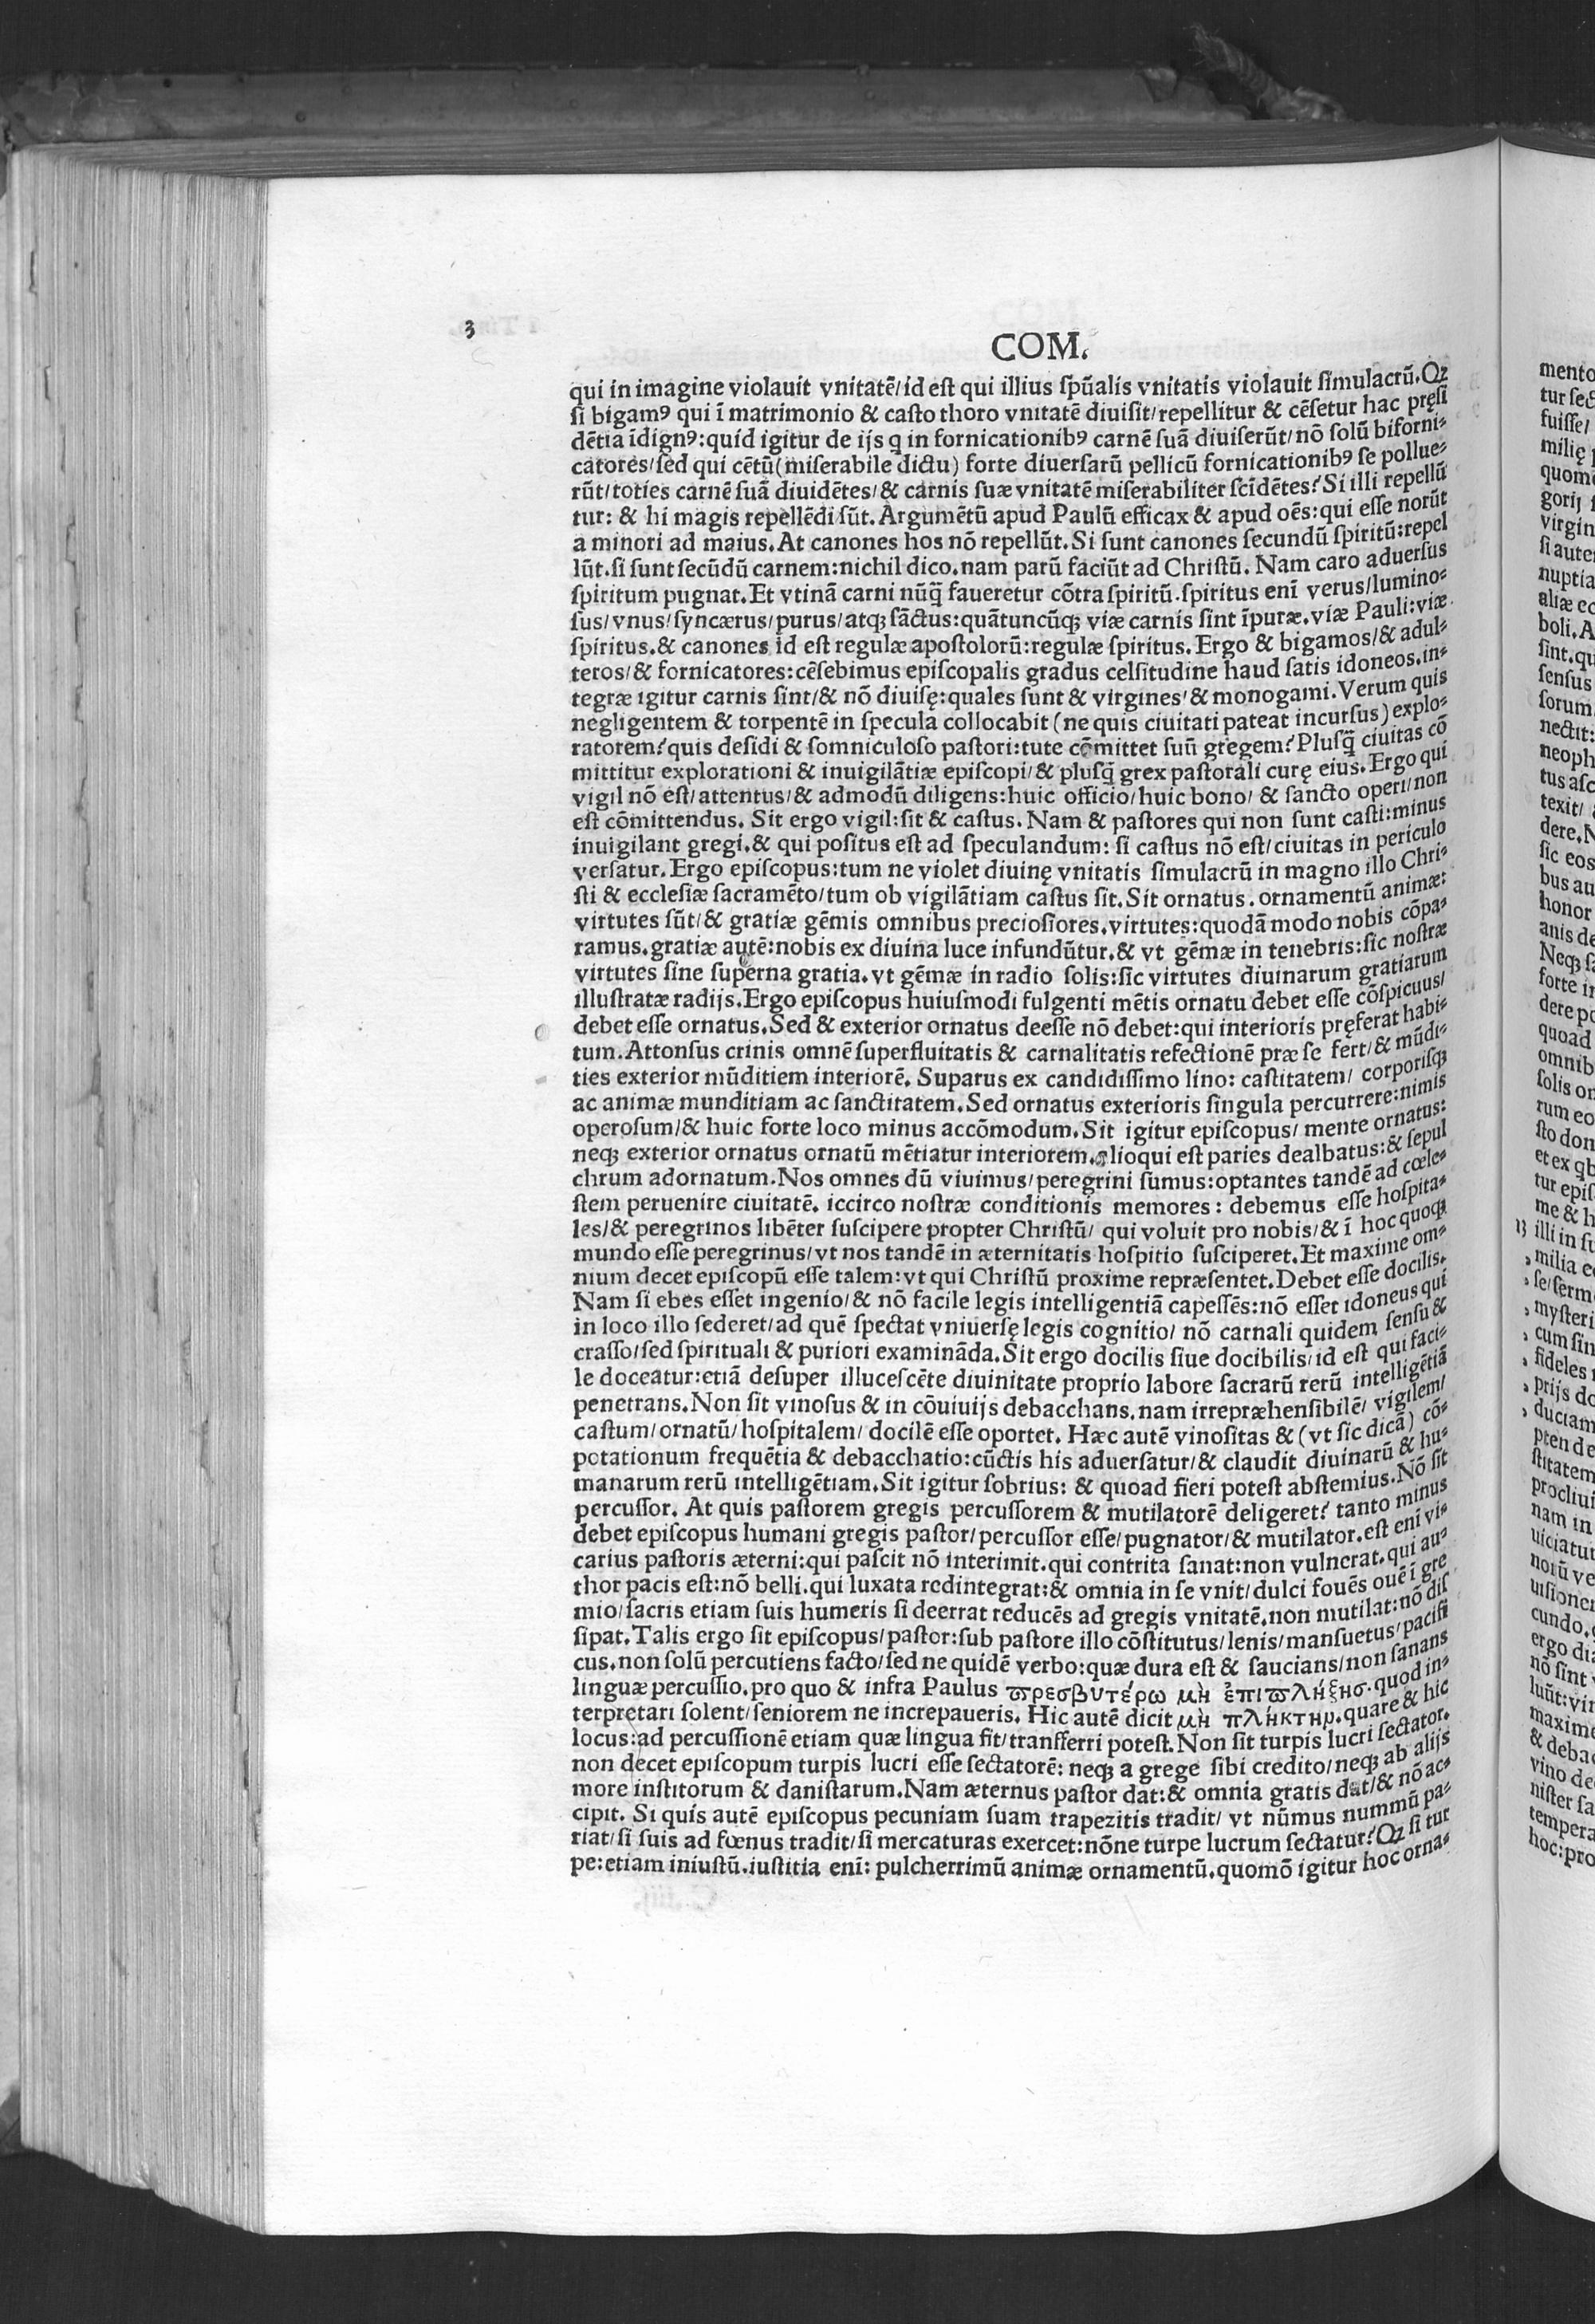 3
COM.
qui in imagine violauit vnitatē/id est qui illius spūalis vnitatis violauit simulacrū. Qꝫ
si bigamꝰ qui ī matrimonio & casto thoro vnitatē diuisit/repellitur & cēsetur hac pręsi
dētia īdignꝰ:quid igitur de ijs q in fornicationibꝰ carnē suā diuiserūt/nō solū biforni-
catores/sed qui cētū(miserabile dictu) forte diuersarū pellicū fornicationibꝰ se pollue-
rūt/toties carnē suā diuidētes/& carnis suæ vnitatē miserabiliter scīdētes? Si illi repellū
tur: & hi magis repellēdi sūt. Argumētū apud Paulū efficax & apud oēs:qui esse norūt
a minori ad maius. At canones hos nō repellūt. Si sunt canones secundū spiritū:repel
lūt. si sunt secūdū carnem:nichil dico. nam parū faciūt ad Christū. Nam caro aduersus
spiritum pugnat. Et vtinā carni nūq̄ faueretur cōtra spiritū. spiritus enī verus/lumino-
sus/vnus/syncærus/purus/atqꝫ sāctus:quātuncūqꝫ viæ carnis sint īpuræ. viæ Pauli:viæ
spiritus. & canones id est regulæ apostolorū:regulæ spiritus. Ergo & bigamos/& adul-
teros/& fornicatores:cēsebimus episcopalis gradus celsitudine haud satis idoneos. in-
tegræ igitur carnis sint/& nō diuisę:quales sunt & virgines/& monogami. Verum quis
negligentem & torpentē in specula collocabit (ne quis ciuitati pateat incursus) explo-
ratorem? quis desidi & somniculoso pastori:tute cōmittet suū gregem? Plusq̄ ciuitas cō
mittitur explorationi & inuigilātiæ episcopi/& plusq̄ grex pastorali curę eius. Ergo qui
vigil nō est/attentus/& admodū diligens:huic officio/huic bono/ & sancto operi/non
est cōmittendus. Sit ergo vigil:sit & castus. Nam & pastores qui non sunt casti:minus
inuigilant gregi. & qui positus est ad speculandum: si castus nō est/ciuitas in periculo
versatur. Ergo episcopus:tum ne violet diuinę vnitatis simulacrū in magno illo Chri-
sti & ecclesiæ sacramēto/tum ob vigilātiam castus sit. Sit ornatus. ornamentū animæ:
virtutes sūt/& gratiæ gēmis omnibus preciosiores. virtutes:quodā modo nobis cōpa-
ramus. gratiæ autē:nobis ex diuina luce infundūtur. & vt gēmæ in tenebris:sic nostræ
virtutes sine superna gratia. vt gēmæ in radio solis:sic virtutes diuinarum gratiarum
illustratæ radijs. Ergo episcopus huiusmodi fulgenti mētis ornatu debet esse cōspicuus/
debet esse ornatus. Sed & exterior ornatus deesse nō debet:qui interioris pręferat habi-
tum. Attonsus crinis omnē superfluitatis & carnalitatis refectionē præ se fert/& mūdi-
ties exterior mūditiem interiorē. Suparus ex candidissimo lino: castitatem/ corporisqꝫ
ac animæ munditiam ac sanctitatem. Sed ornatus exterioris singula percurrere:nimis
operosum/& huic forte loco minus accōmodum. Sit igitur episcopus/ mente ornatus:
neqꝫ exterior ornatus ornatū mētiatur interiorem. alioqui est paries dealbatus:& sepul
chrum adornatum. Nos omnes dū viuimus/peregrini sumus:optantes tandē ad cœle-
stem peruenire ciuitatē. iccirco nostræ conditionis memores: debemus esse hospita-
les/& peregrinos libēter suscipere propter Christū/ qui voluit pro nobis/& ī hoc quoqꝫ
mundo esse peregrinus/vt nos tandē in æternitatis hospitio susciperet. Et maxime om-
nium decet episcopū esse talem:vt qui Christū proxime repræsentet. Debet esse docilis.
Nam si ebes esset ingenio/& nō facile legis intelligentiā capessēs:nō esset idoneus qui
in loco illo sederet/ad quē spectat vniuersę legis cognitio/ nō carnali quidem sensu &
crasso/sed spirituali & puriori examināda. Sit ergo docilis siue docibilis/id est qui faci-
le doceatur:etiā desuper illucescēte diuinitate proprio labore sacrarū rerū intelligētiā
penetrans. Non sit vinosus & in cōuiuijs debacchans. nam irrepræhensibilē/ vigilem/
castum/ornatū/hospitalem/ docilē esse oportet. Hæc autē vinositas & (vt sic dicā) cō-
potationum frequētia & debacchatio:cūctis his aduersatur/& claudit diuinarū & hu-
manarum rerū intelligētiam. Sit igitur sobrius: & quoad fieri potest abstemius. Nō sit
percussor. At quis pastorem gregis percussorem & mutilatorē deligeret? tanto minus
debet episcopus humani gregis pastor/percussor esse/pugnator/& mutilator. est enī vi-
carius pastoris æterni:qui pascit nō interimit. qui contrita sanat:non vulnerat. qui au-
thor pacis est:nō belli. qui luxata redintegrat:& omnia in se vnit/dulci fouēs ouē ī gre
mio/sacris etiam suis humeris si deerrat reducēs ad gregis vnitatē. non mutilat:nō dis
sipat. Talis ergo sit episcopus/pastor:sub pastore illo cōstitutus/lenis/mansuetus/pacifi
cus. non solū percutiens facto/sed ne quidē verbo:quæ dura est & saucians/non sanans
linguæ percussio. pro quo & infra Paulus πρεσβυτέρω μὴ ἐπιπλήξησ. quod in-
terpretari solent/seniorem ne increpaueris. Hic autē dicit μὴ πλήκτην. quare & hic
locus:ad percussionē etiam quæ lingua fit/transferri potest. Non sit turpis lucri sectator.
non decet episcopum turpis lucri esse sectatorē: neqꝫ a grege sibi credito/neqꝫ ab alijs
more institorum & danistarum. Nam æternus pastor dat:& omnia gratis dat/& nō ac-
cipit. Si quis autē episcopus pecuniam suam trapezitis tradit/ vt nūmus nummū pa-
riat/si suis ad fœnus tradit/si mercaturas exercet:nōne turpe lucrum sectatur? Qꝫ si tur
pe:etiam iniustū. iustitia enī: pulcherrimū animæ ornamentū. quomō igitur hoc orna-